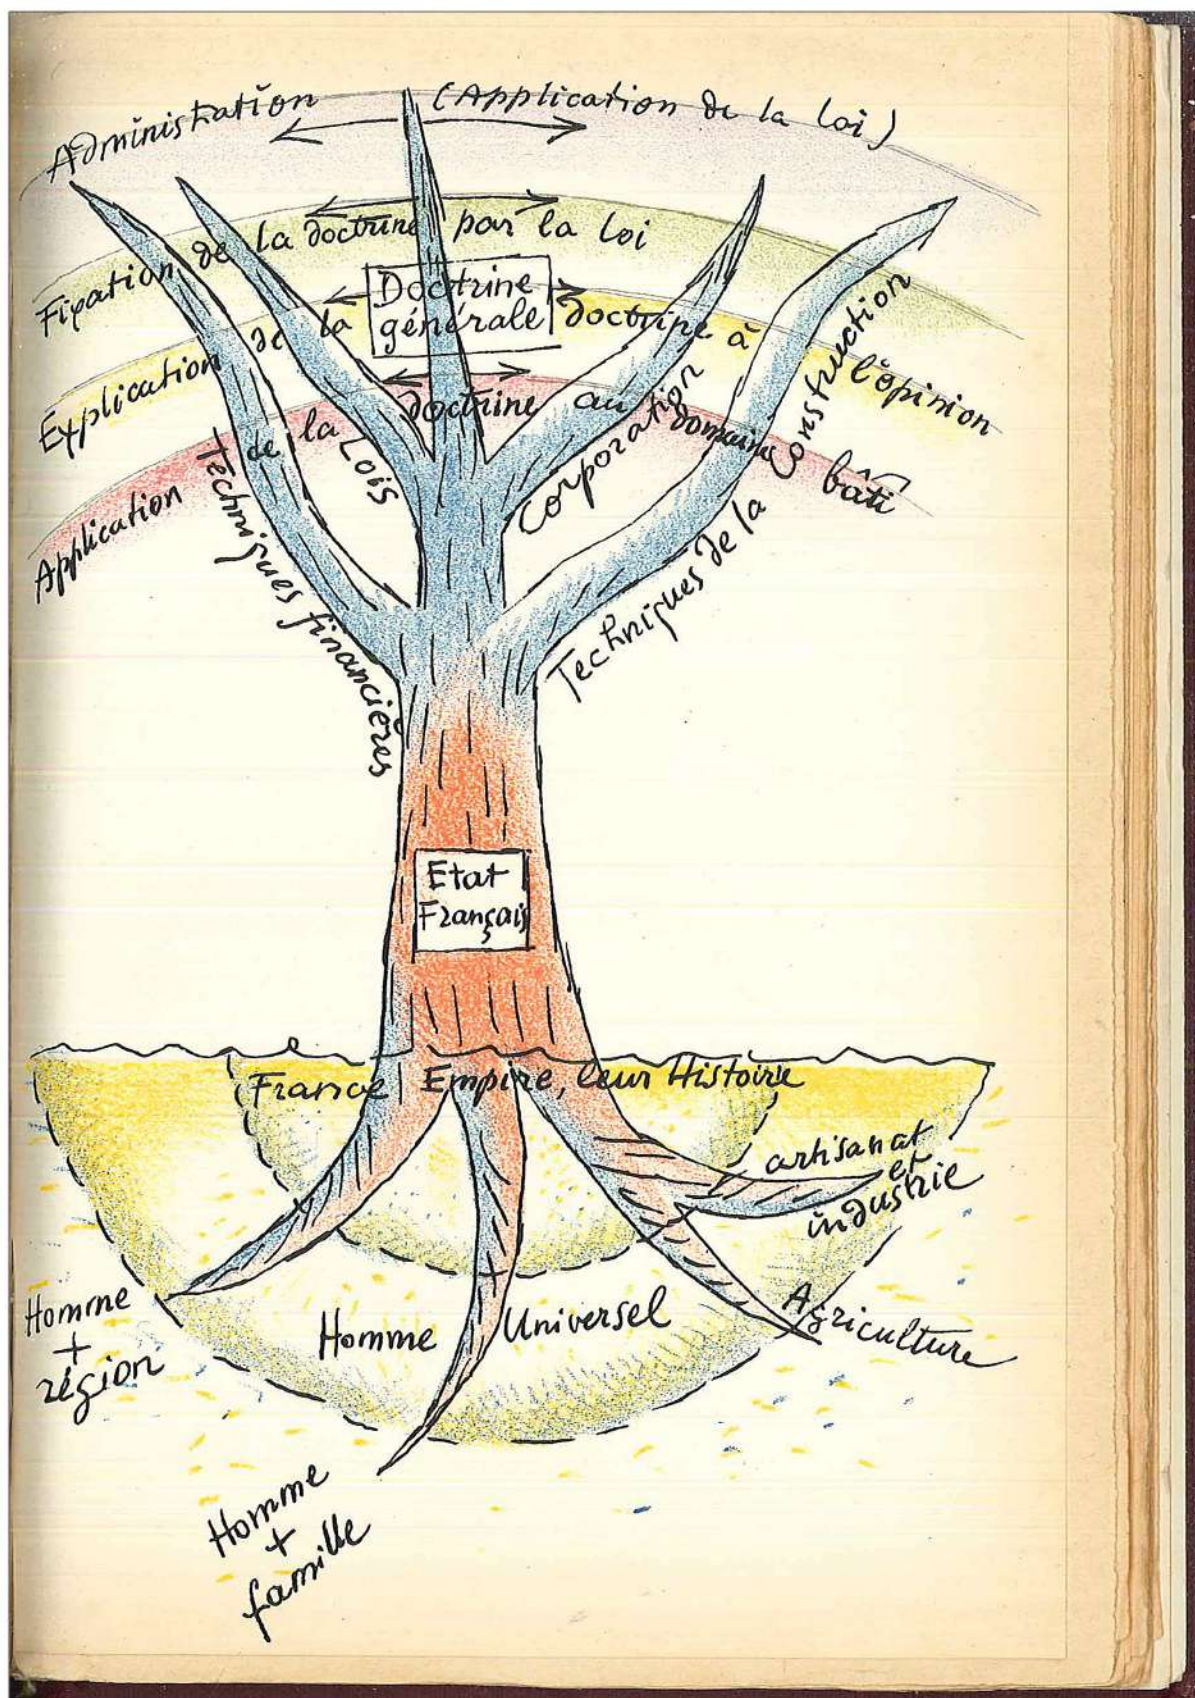 Administration (Application de la loi)
Fixation de la doctrine par la loi
Doctrine
générale
Explication de la doctrine à l'opinion
Application de la doctrine au domaine bâti
Techniques financières
Lois
Corporation
Techniques de la Construction
Etat
Français
France Empire, leur Histoire
artisanat
et
industrie
Homme
+
région
Homme Universel
Agriculture
Homme
+
famille